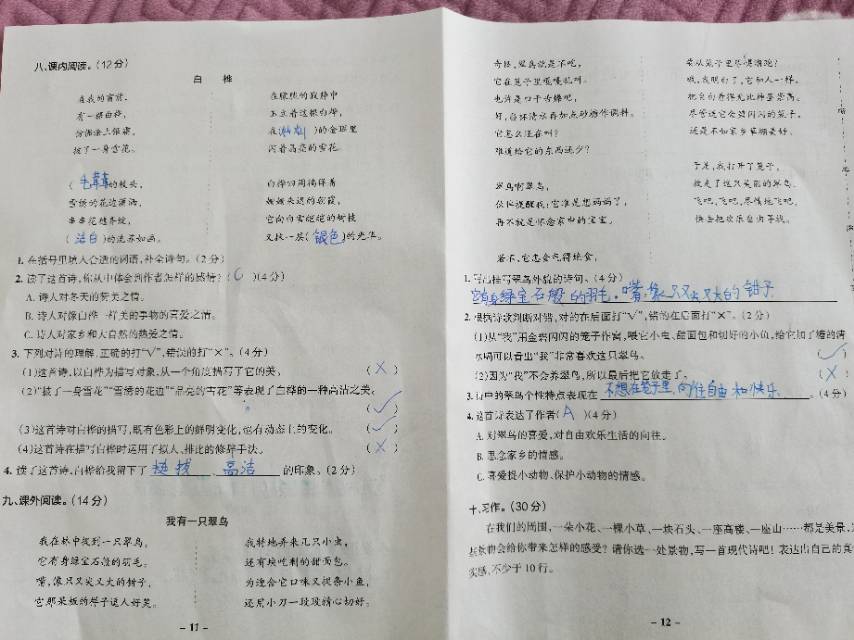 八、课内阅读。(12分)
白 桦
在我的窗前,
有一棵白桦,
仿佛涂上银霜,
披了一身雪花。
(毛茸茸的枝头,
雪绣的花边潇洒,
串串花穗齐绽,
(洁白)的流苏如画。
在朦胧的寂静中
玉立着这棵白桦,
在( )的金晖里
闪着晶亮的雪花。
白桦四周徜徉着
姗姗来迟的朝霞,
它向白雪皑皑的树枝
又抹一层(银色)的光华。
1. 在括号里填入合适的词语,补全诗句。(2分)
2. 读了这首诗,你从中体会到作者怎样的感情?(C)(4分)
A. 诗人对冬天的赞美之情。
B. 诗人对像白桦一样美的事物的喜爱之情。
C. 诗人对家乡和大自然的热爱之情。
3. 下列对诗的理解,正确的打“√”,错误的打“×”。(4分)
(1)这首诗,以白桦为描写对象,从一个角度描写了它的美。 (×)
(2)“披了一身雪花”“雪绣的花边”“晶亮的雪花”等表现了白桦的一种高洁之美。
(✓)
(3)这首诗对白桦的描写,既有色彩上的鲜明变化,也有动态上的变化。 (✓)
(4)这首诗在描写白桦时运用了拟人、排比的修辞手法。 (×)
4. 读了这首诗,白桦给我留下了 挺拔 、 高洁 的印象。(2分)
九、课外阅读。(14分)
我有一只翠鸟
我在林中捉到一只翠鸟,
它有身绿宝石般的羽毛。
嘴,像只又尖又大的钳子,
它那呆板的样子逗人好笑。
我特地弄来几只小虫,
还有块吃剩的甜面包。
为迎合它口味又捉条小鱼,
还用小刀一段段精心切好。
- 11 -
奇怪,翠鸟就是不吃,
它在笼子里嘎嘎乱叫。
也许是口干舌燥吧,
好,勺杯清水再加点砂糖作调料。
它怎么还在叫?
难道给它的东西还少?
翠鸟啊翠鸟,
伙伴提醒我:它准是想妈妈了,
再不就是怀念家中的宝宝。
若不,它怎会气得绝食,
要从笼子里拼命逃跑?
哦,我明白了,它和人一样,
把自由看得无比神圣崇高。
尽管送它金碧闪闪的笼子,
还是不如家乡草棚最好。
于是,我打开了笼子,
放走了这只美丽的翠鸟。
飞吧,飞吧,尽情地飞吧,
快去把欢乐自由寻找。
1. 写出描写翠鸟外貌的诗句。(4分)
它有身绿宝石般的羽毛。嘴,像只又尖又大的钳子
2. 根据诗歌判断对错,对的在后面打“√”,错的在后面打“×”。(2分)
(1)从“我”用金碧闪闪的笼子作窝,喂它小虫、甜面包和切好的小鱼,给它加了糖的清
水喝可以看出“我”非常喜欢这只翠鸟。 (✓)
(2)因为“我”不会养翠鸟,所以最后把它放走了。 (×)
3. 诗中的翠鸟个性特点表现在 不想在笼子里,向往自由和快乐 。(4分)
4. 这首诗表达了作者(A)(4分)
A. 对翠鸟的喜爱,对自由欢乐生活的向往。
B. 思念家乡的情感。
C. 喜爱捉小动物、保护小动物的情感。
十、习作。(30分)
在我们的周围,一朵小花、一棵小草、一块石头、一座高楼、一座山……都是美景,
些景物会给你带来怎样的感受?请你选一处景物,写一首现代诗吧!表达出自己的真
实感,不少于10行。
- 12 -